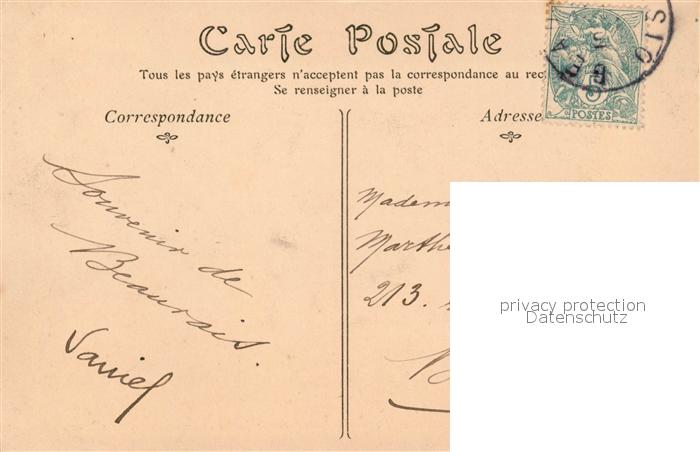 Carte Postale
Tous les pays étrangers n'acceptent pas la correspondance au rec
Se renseigner à la poste
Correspondance
Adresse
5
POSTES
Souvenir de
Beauvais.
Daniel
Madem
Marthe
213.
privacy protection
Datenschutz